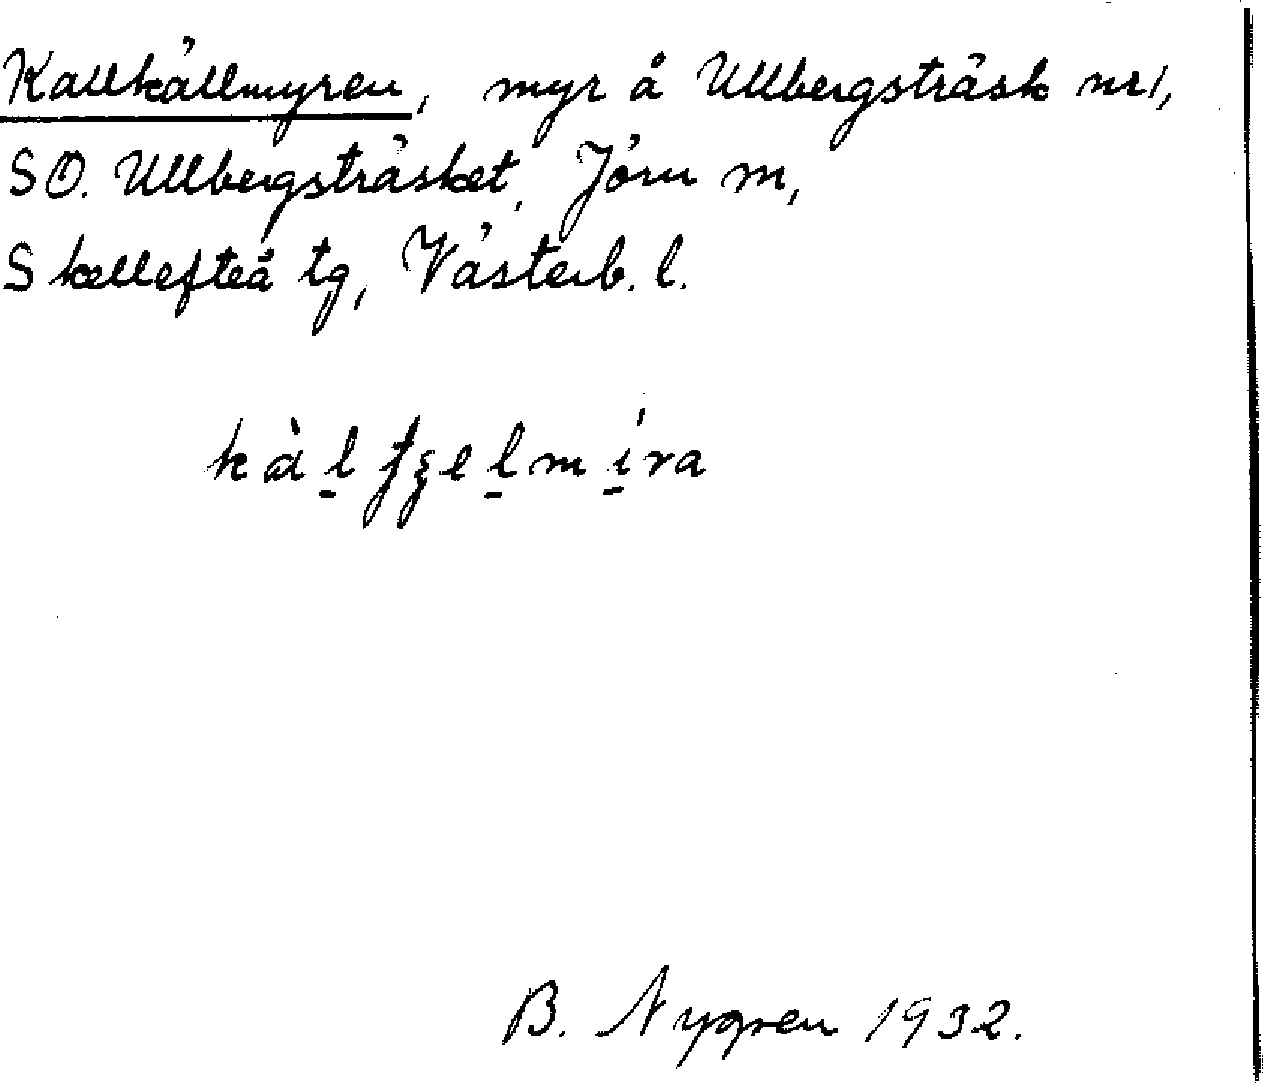 Kallkällmyren, myr å Ullbergsträsk nr 1,
SO. Ullbergsträsket, Jörn m,
Skellefteå tg, Västerb. l.
B. Nygren 1932.